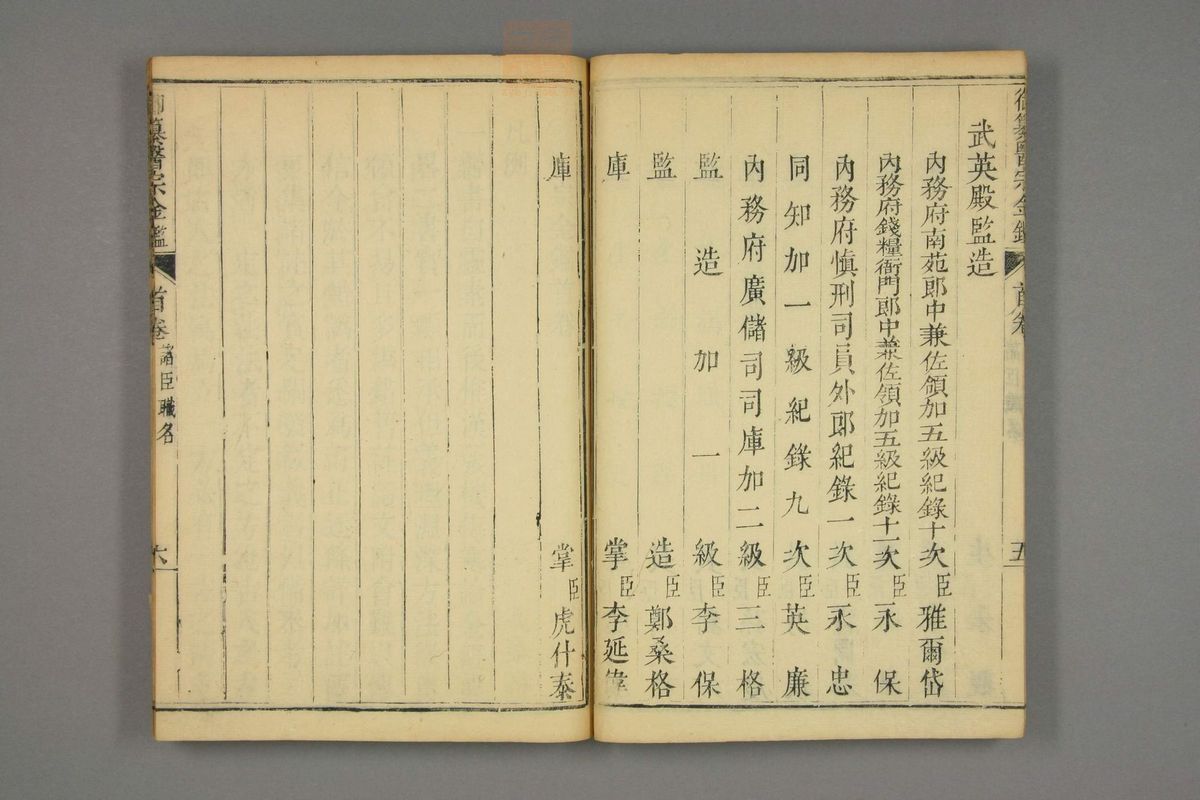 武英殿監造
內務府南苑郎中兼佐領加五級紀錄十次臣雅爾岱
內務府錢糧衙門郎中兼佐領加五級紀錄十一次臣永保
內務府慎刑司員外郎紀錄一次臣永忠
同知加一級紀錄九次臣英廉
內務府廣儲司司庫加二級臣三格
監造加一級臣李保
監造臣鄭桑格
庫掌臣李延偉
庫掌臣虎什泰
御纂醫宗金鑑 首卷 諸臣職名 五
御纂醫宗金鑑 首卷 諸臣職名 六